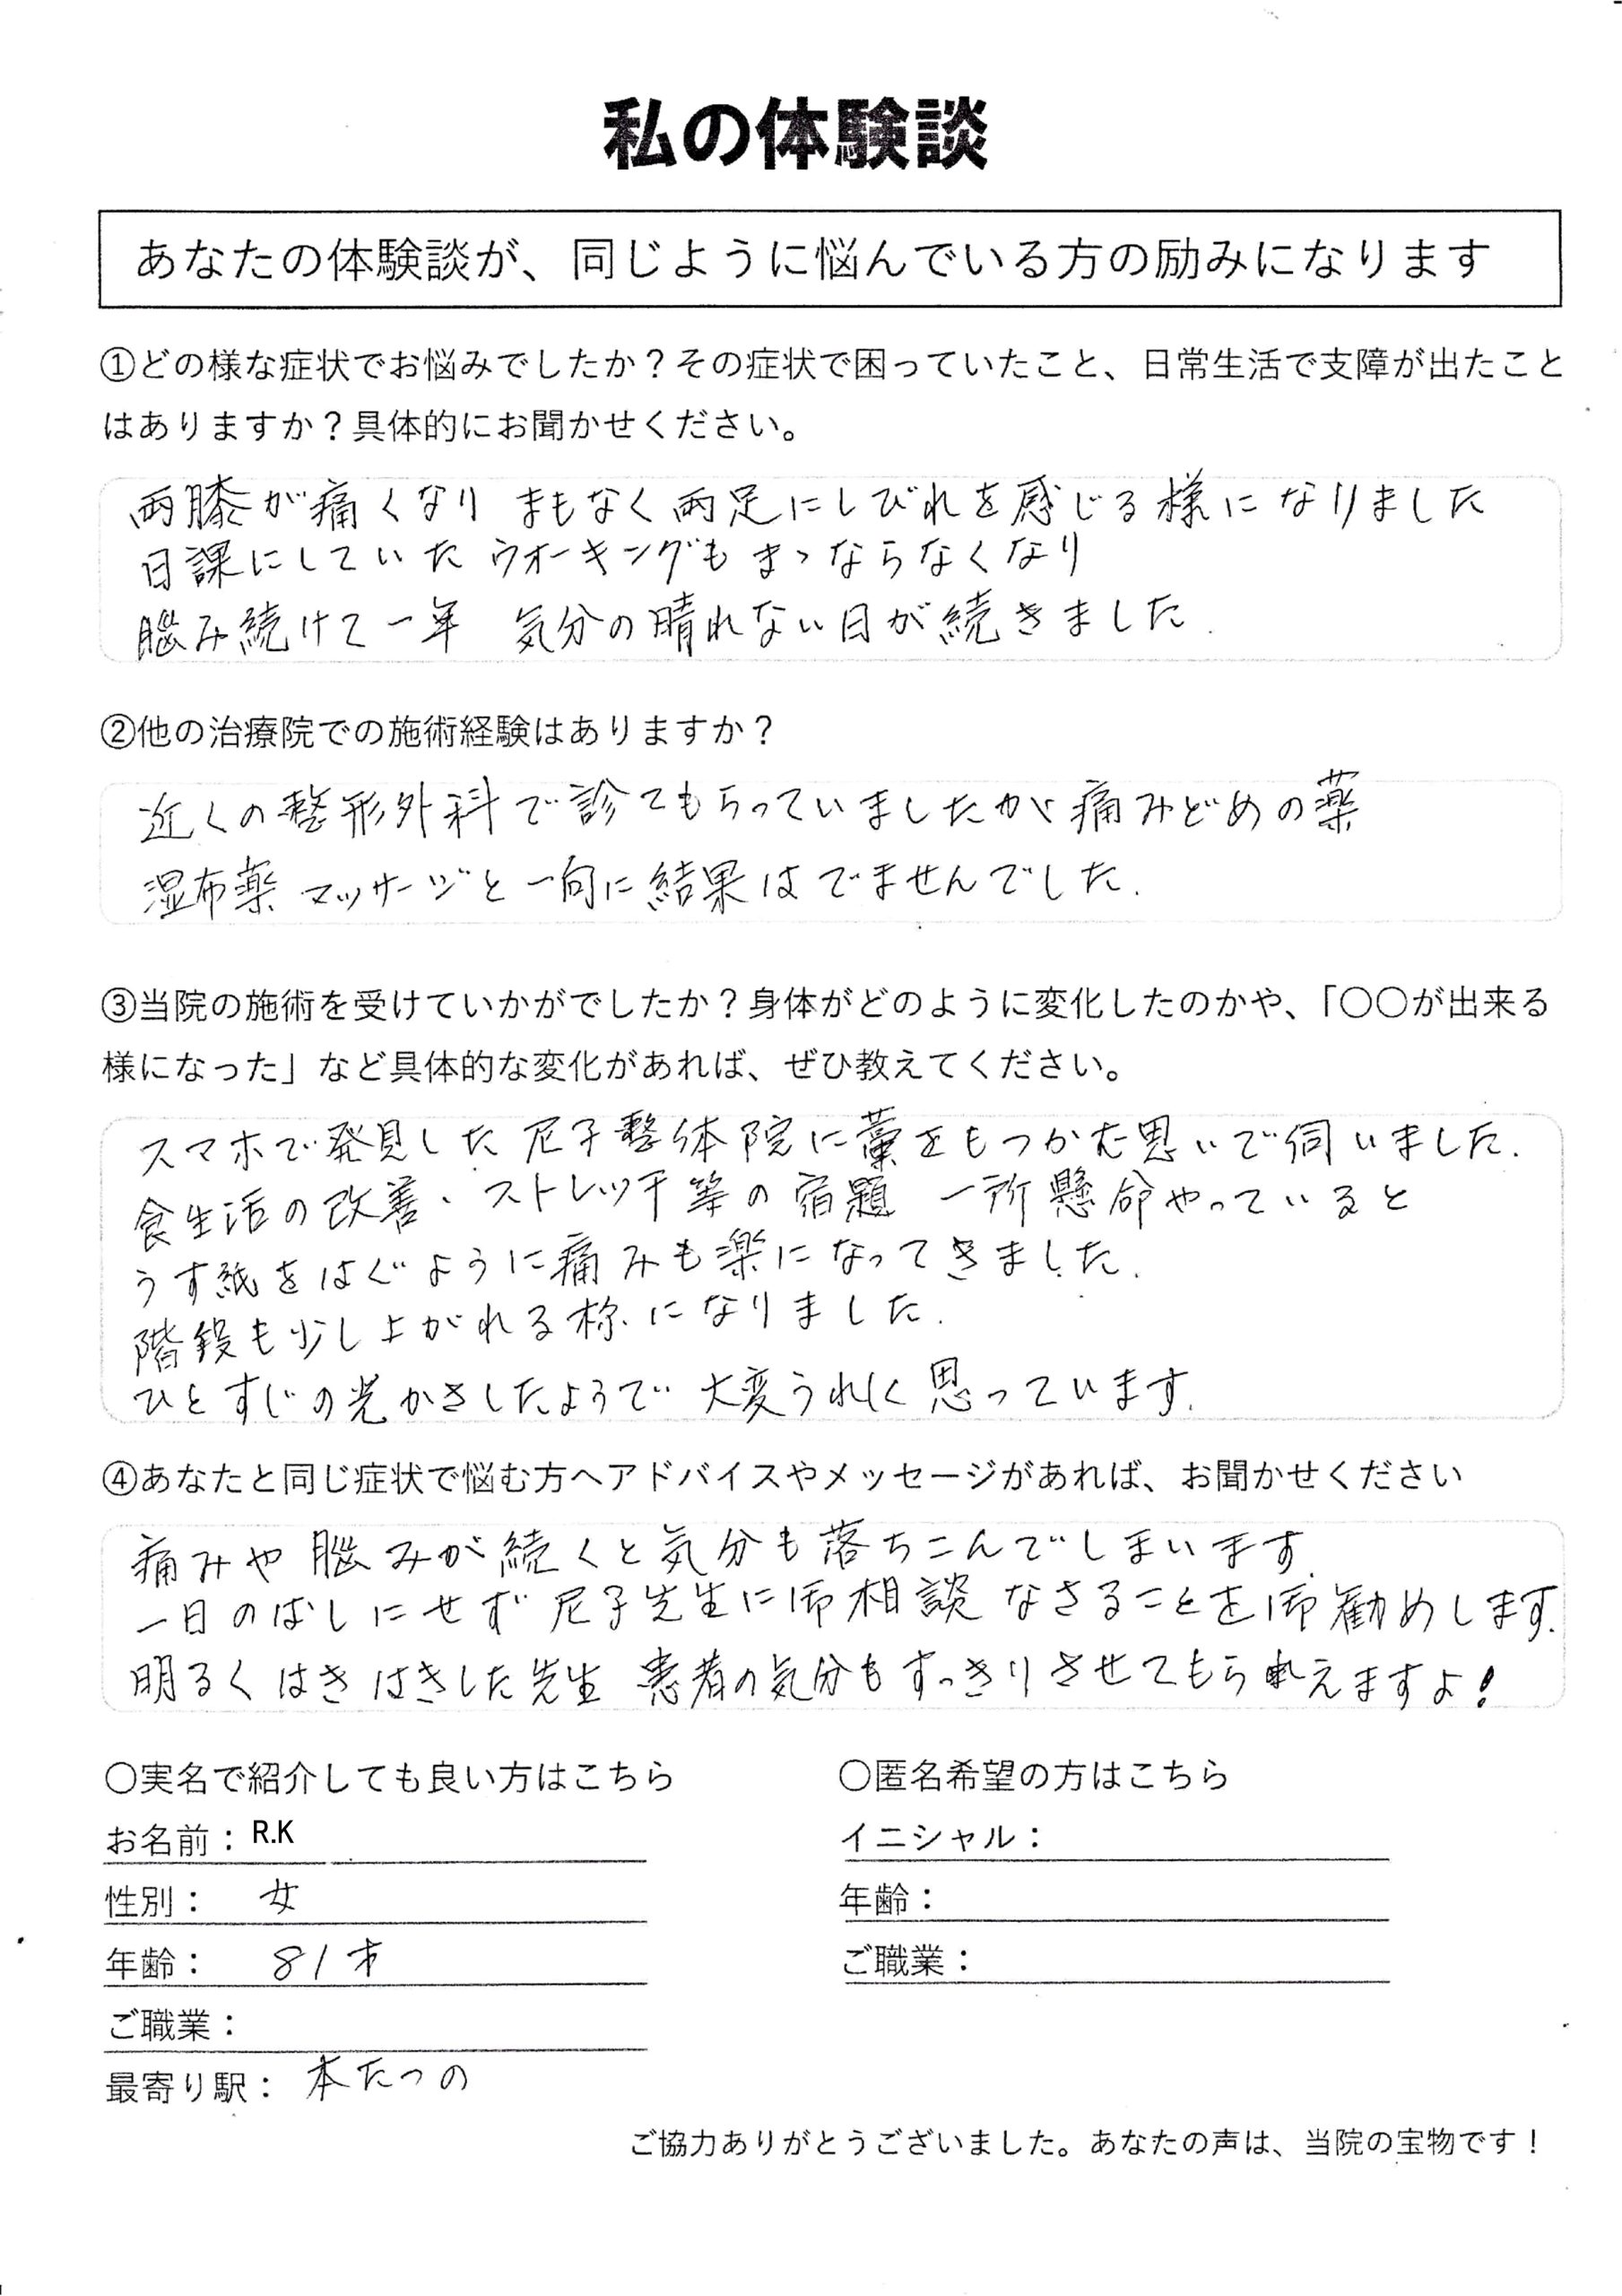 私の体験談
あなたの体験談が、同じように悩んでいる方の励みになります
①どの様な症状でお悩みでしたか？その症状で困っていたこと、日常生活で支障が出たこと
はありますか？具体的にお聞かせください。
両膝が痛くなり まもなく両足にしびれを感じる様になりました
日課にしていた ウオーキングもまゝならなくなり
脳み続けて一年 気分の晴れない日が続きました.
②他の治療院での施術経験はありますか？
近くの整形外科で診てもらっていましたが 痛みどめの薬
湿布薬 マッサージと一向に結果はでませんでした.
③当院の施術を受けていかがでしたか？身体がどのように変化したのかや、「〇〇が出来る
様になった」など具体的な変化があれば、ぜひ教えてください。
スマホで発見した 尼子整体院に藁をもつかむ思いで伺いました.
食生活の改善、ストレッチ等の宿題 一所懸命やっていると
うす紙をはぐように痛みも楽になってきました.
階段も少し上がれる様になりました.
ひとすじの光がさしたようで 大変うれしく思っています.
④あなたと同じ症状で悩む方へアドバイスやメッセージがあれば、お聞かせください
痛みや脳みが続くと気分も落ちこんでしまいます.
一日のばしにせず 尼子先生に御相談 なさることを御勧めします.
明るくはきはきした先生 患者の気分もすっきりさせてもらえますよ!
〇実名で紹介しても良い方はこちら
お名前：R.K
性別： 女
年齢： 81才
ご職業：
最寄り駅： 本たつの
〇匿名希望の方はこちら
イニシャル：
年齢：
ご職業：
ご協力ありがとうございました。あなたの声は、当院の宝物です！